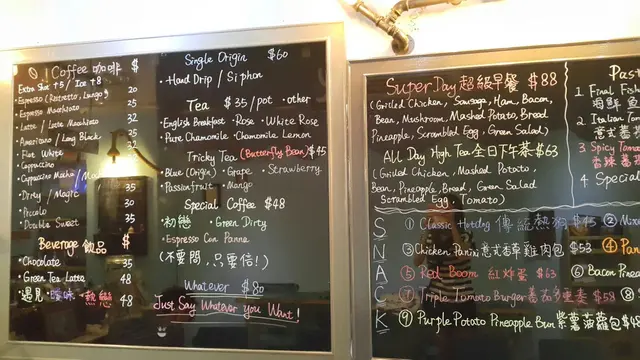 Coffee 咖啡 $
Extra Shot +5 / Ice +8
• Espresso (Ristretto, Lungo) 20
• Espresso Macchiato 25
• Latte / Latte Macchiato 32
• Americano / Long Black 25
• Flat White
• Cappuccino
• Cappuccino Mocha /
• Dirty / Magic 35
• Piccolo 30
• Double Sweet 35
Beverage 飲品 $
• Chocolate 35
• Green Tea Latte 48
• 遇見 • 曖昧 • 熱戀 48
Single Origin $60
• Hand Drip / Siphon
Tea $35/pot • other
• English Breakfast • Rose • White Rose
• Pure Chamomile • Chamomile Lemon
Tricky Tea (Butterfly Bean) $45
• Blue (Origin) • Grape • Strawberry
• Passionfruit • Mango
Special Coffee $48
• 初戀 • Green Dirty
• Espresso Con Panna
(不要問,只要信!)
Whatever $80
Just Say Whatever you Want!
Super Day 超級早餐 $88
(Grilled Chicken, Sausage, Ham, Bacon,
Bean, Mushroom, Mashed Potato, Bread,
Pineapple, Scrambled Egg, Green Salad)
All Day High Tea 全日下午茶 $63
(Grilled Chicken, Mashed Potato,
Bean, Pineapple, Bread, Green Salad
Scrambled Egg, Tomato)
Past
1 Final Fish
海鮮
2 Italian Tom
意式
3 Spicy Toma
香辣
4 Special
SNACK
① Classic Hotdog 傳統熱狗 $45
②
③ Chicken Panini 意式香草雞肉包 $58
④ Pan
⑤ Red Boom 紅炸蛋 $63
⑥ Bacon Pinea
⑦ Triple Tomato Burger $58
⑧
⑨ Purple Potato Pineapple Bun 紫薯菠蘿包 $48